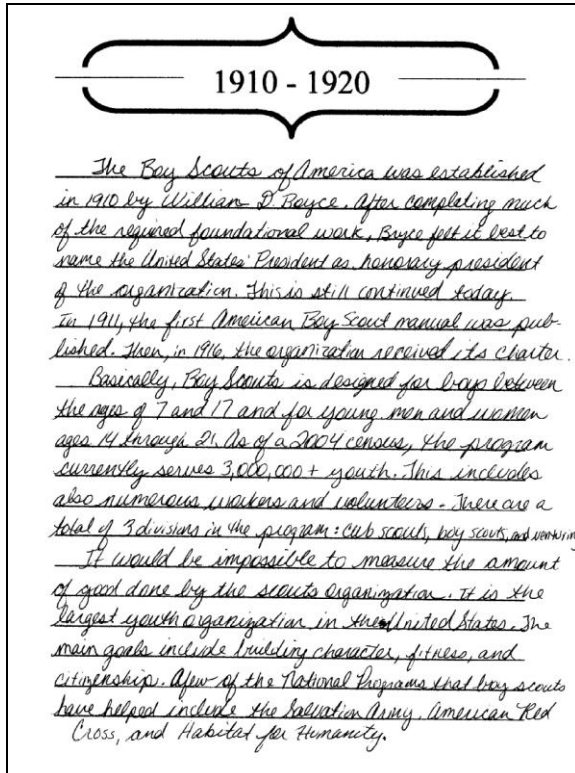 1910 - 1920
The Boy Scouts of America was established
in 1910 by William D. Boyce. After completing much
of the required foundational work, Bryce felt it best to
name the United States' President as honorary president
of the organization. This is still continued today.
In 1911, the first American Boy Scout manual was pub-
lished. Then, in 1916, the organization received its charter.
Basically, Boy Scouts is designed for boys between
the ages of 7 and 17 and for young men and women
ages 14 through 21. As of a 2004 census, the program
currently serves 3,000,000+ youth. This includes
also numerous workers and volunteers. There are a
total of 3 divisions in the program: cub scouts, boy scouts, and venturing
It would be impossible to measure the amount
of good done by the scouts organization. It is the
largest youth organization in the United States. The
main goals include building character, fitness, and
citizenship. A few of the National Programs that boy scouts
have helped include the Salvation Army, American Red
Cross, and Habitat for Humanity.